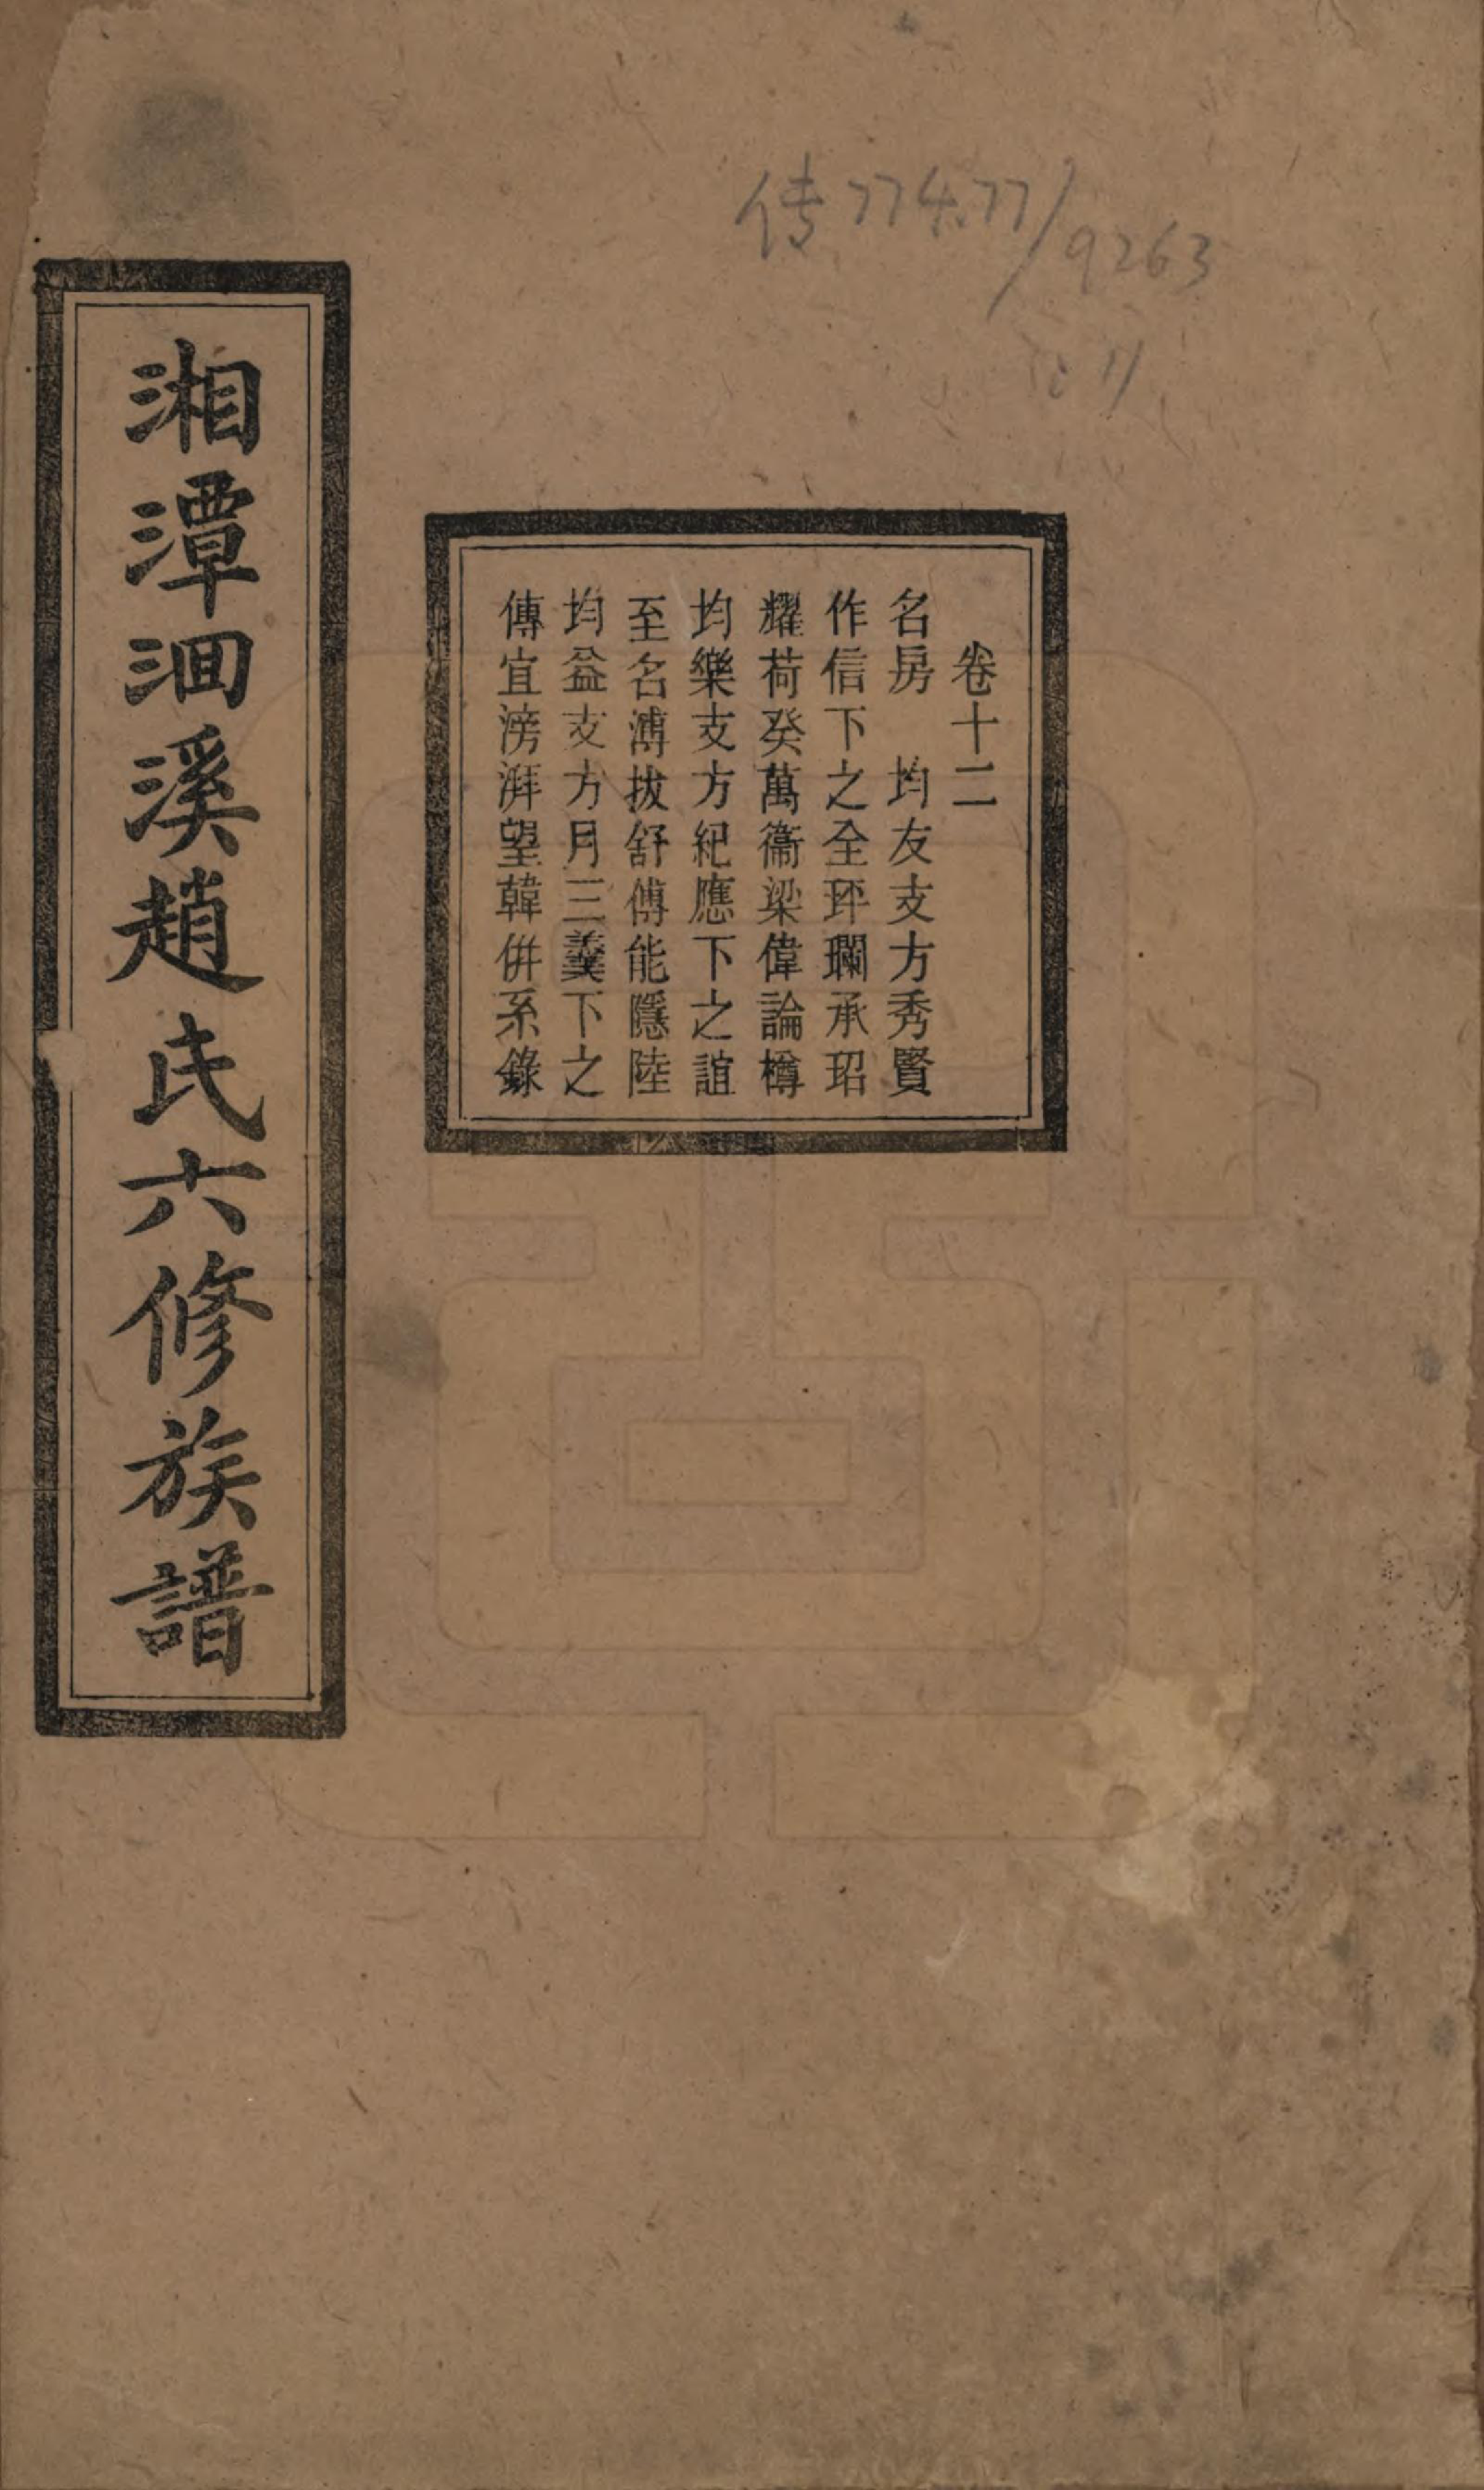 传774.77/9263
:11
卷十二
名房　均友支方秀賢
作信下之全玶瓓承玿
耀荷癸萬衞梁偉論樽
均樂支方紀應下之誼
至名溥拔舒傅能隱陸
均益支方月三義下之
傳宜滂湃望韓併系錄
湘潭洄溪趙氏六修族譜